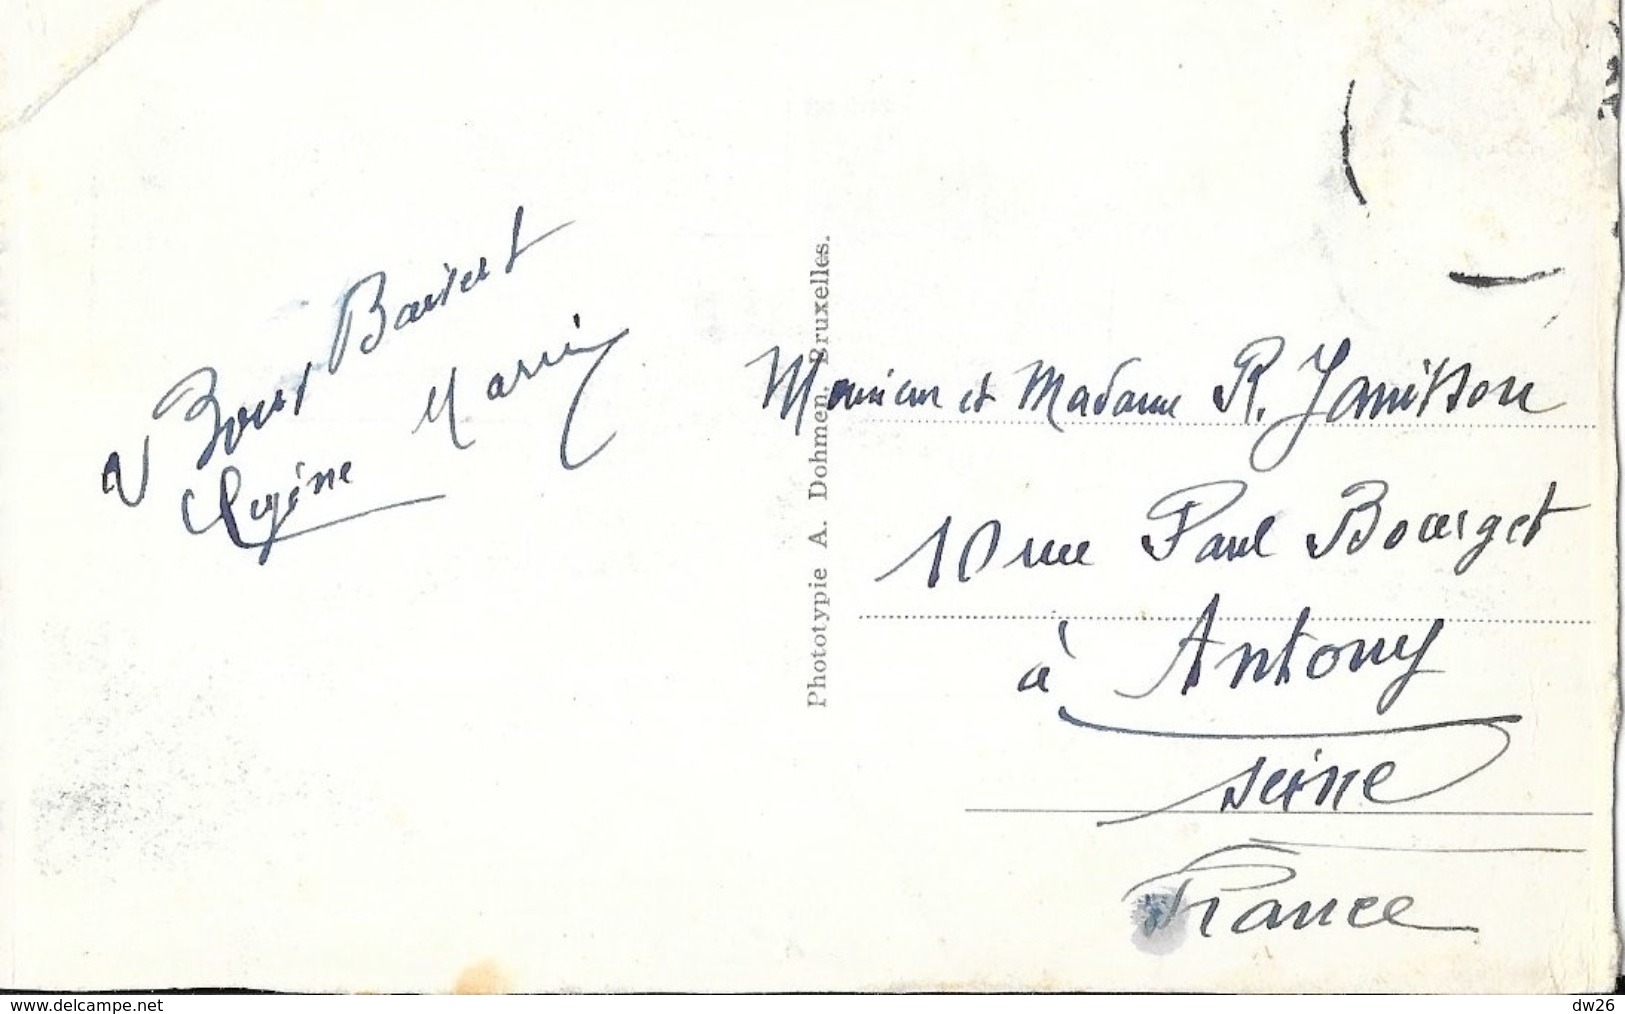 Bons Baisers
Regine Marin
Phototypie A. Dohmen, Bruxelles.
Monsieur et Madame R. Janisson
10 rue Paul Bourget
à Antony
Seine
France
www.delcampe.net
dw26